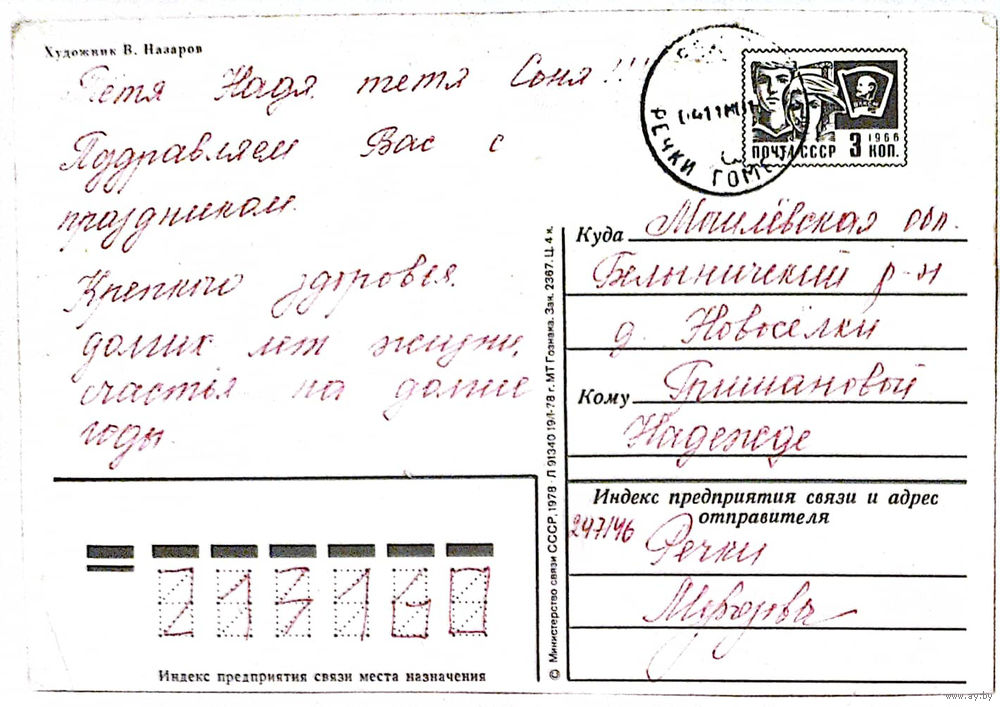 Художник В. Назаров
Тётя Надя, тётя Соня!!!
Пздравляем Вас с
праздником.
Крепкого здоровья,
долгих лет жизни,
счастья на долгие
годы.
РЕЧКИ ГОМ
1966
ПОЧТА СССР 3 КОП.
Куда Могилёвская обл.
Белыничский р-н
д. Новосёлки
Кому Гришановой
Надежде
Индекс предприятия связи и адрес
отправителя
247146 Речки
Индекс предприятия связи места назначения
© Министерство связи СССР, 1978 · Л 91340 19/I-78 г. МТ Гознака. Зак. 2367. Ц. 4 к.
www.ay.by